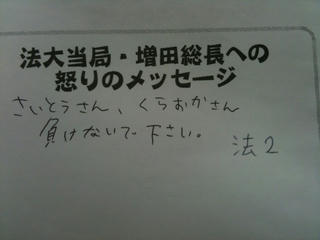 法大当局・増田総長への
怒りのメッセージ
さいとうさん、くらおかさん
負けないで下さい。
法2